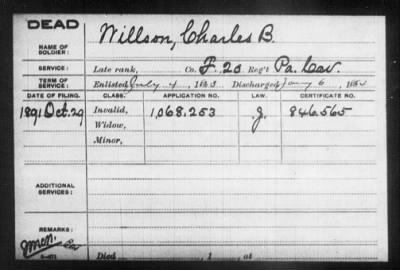 DEAD
NAME OF SOLDIER: Willson, Charles B.
SERVICE: Late rank, Co. F. 20 Reg't Pa. Cav.
TERM OF SERVICE: Enlisted July 4, 1863 Discharged Jany 6, 186
DATE OF FILING. CLASS. APPLICATION NO. LAW. CERTIFICATE NO.
1891 Oct. 29 Invalid, 1,068.253 J. 846.565
Widow,
Minor,
ADDITIONAL SERVICES:
REMARKS:
Died , 1 , at